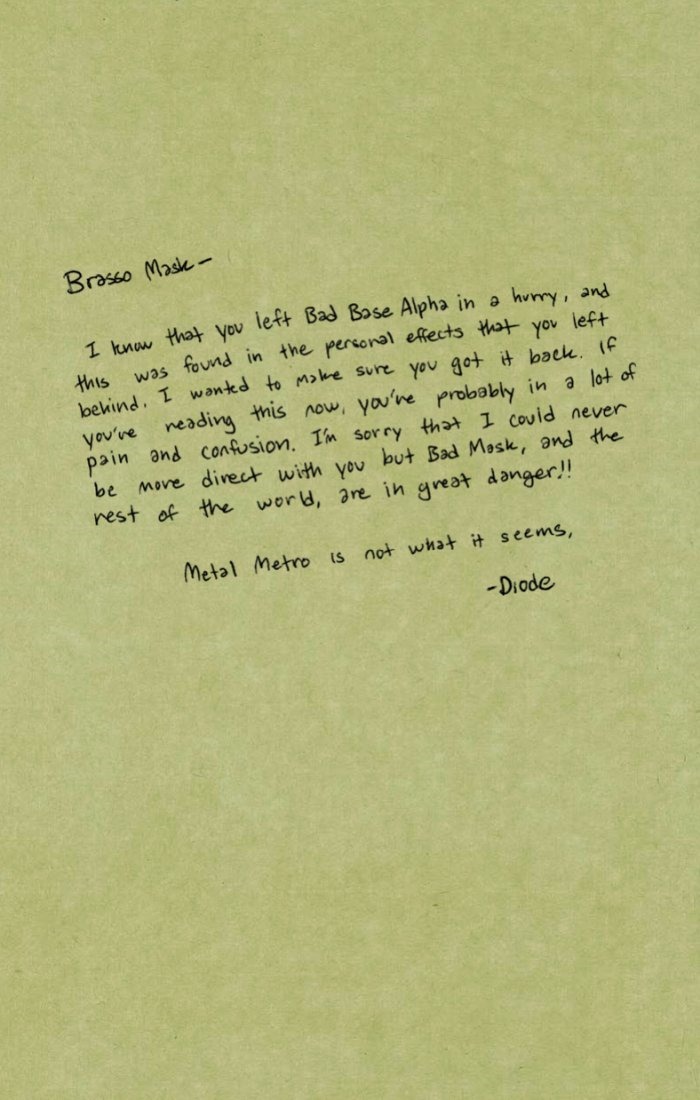 Brasso Mask-
I know that you left Bad Base Alpha in a hurry, and
this was found in the personal effects that you left
behind. I wanted to make sure you got it back. If
you've reading this now, you're probably in a lot of
pain and confusion. I'm sorry that I could never
be more direct with you but Bad Mask, and the
rest of the world, are in great danger!!
Metal Metro is not what it seems,
-Diode